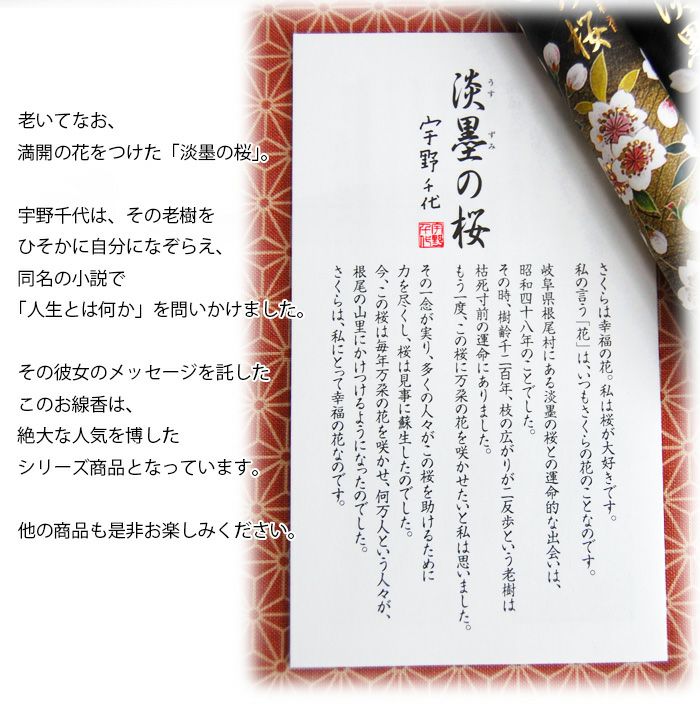 老いてなお、
満開の花をつけた「淡墨の桜」。
宇野千代は、その老樹を
ひそかに自分になぞらえ、
同名の小説で
「人生とは何か」を問いかけました。
その彼女のメッセージを託した
このお線香は、
絶大な人気を博した
シリーズ商品となっています。
他の商品も是非お楽しみください。
淡墨の桜
うす ずみ
宇野千代
宇野千代
さくらは幸福の花。私は桜が大好きです。
私の言う「花」は、いつもさくらの花のことなのです。
岐阜県根尾村にある淡墨の桜との運命的な出会いは、
昭和四十八年のことでした。
その時、樹齢千二百年、枝の広がりが二反歩という老樹は
枯死寸前の運命にありました。
もう一度、この桜に万朶の花を咲かせたいと私は思いました。
その一念が実り、多くの人々がこの桜を助けるために
力を尽くし、桜は見事に蘇生したのでした。
今、この桜は毎年万朶の花を咲かせ、何万人という人々が、
根尾の山里にかけつけるようになったのでした。
さくらは、私にとって幸福の花なのです。
淡墨
桜